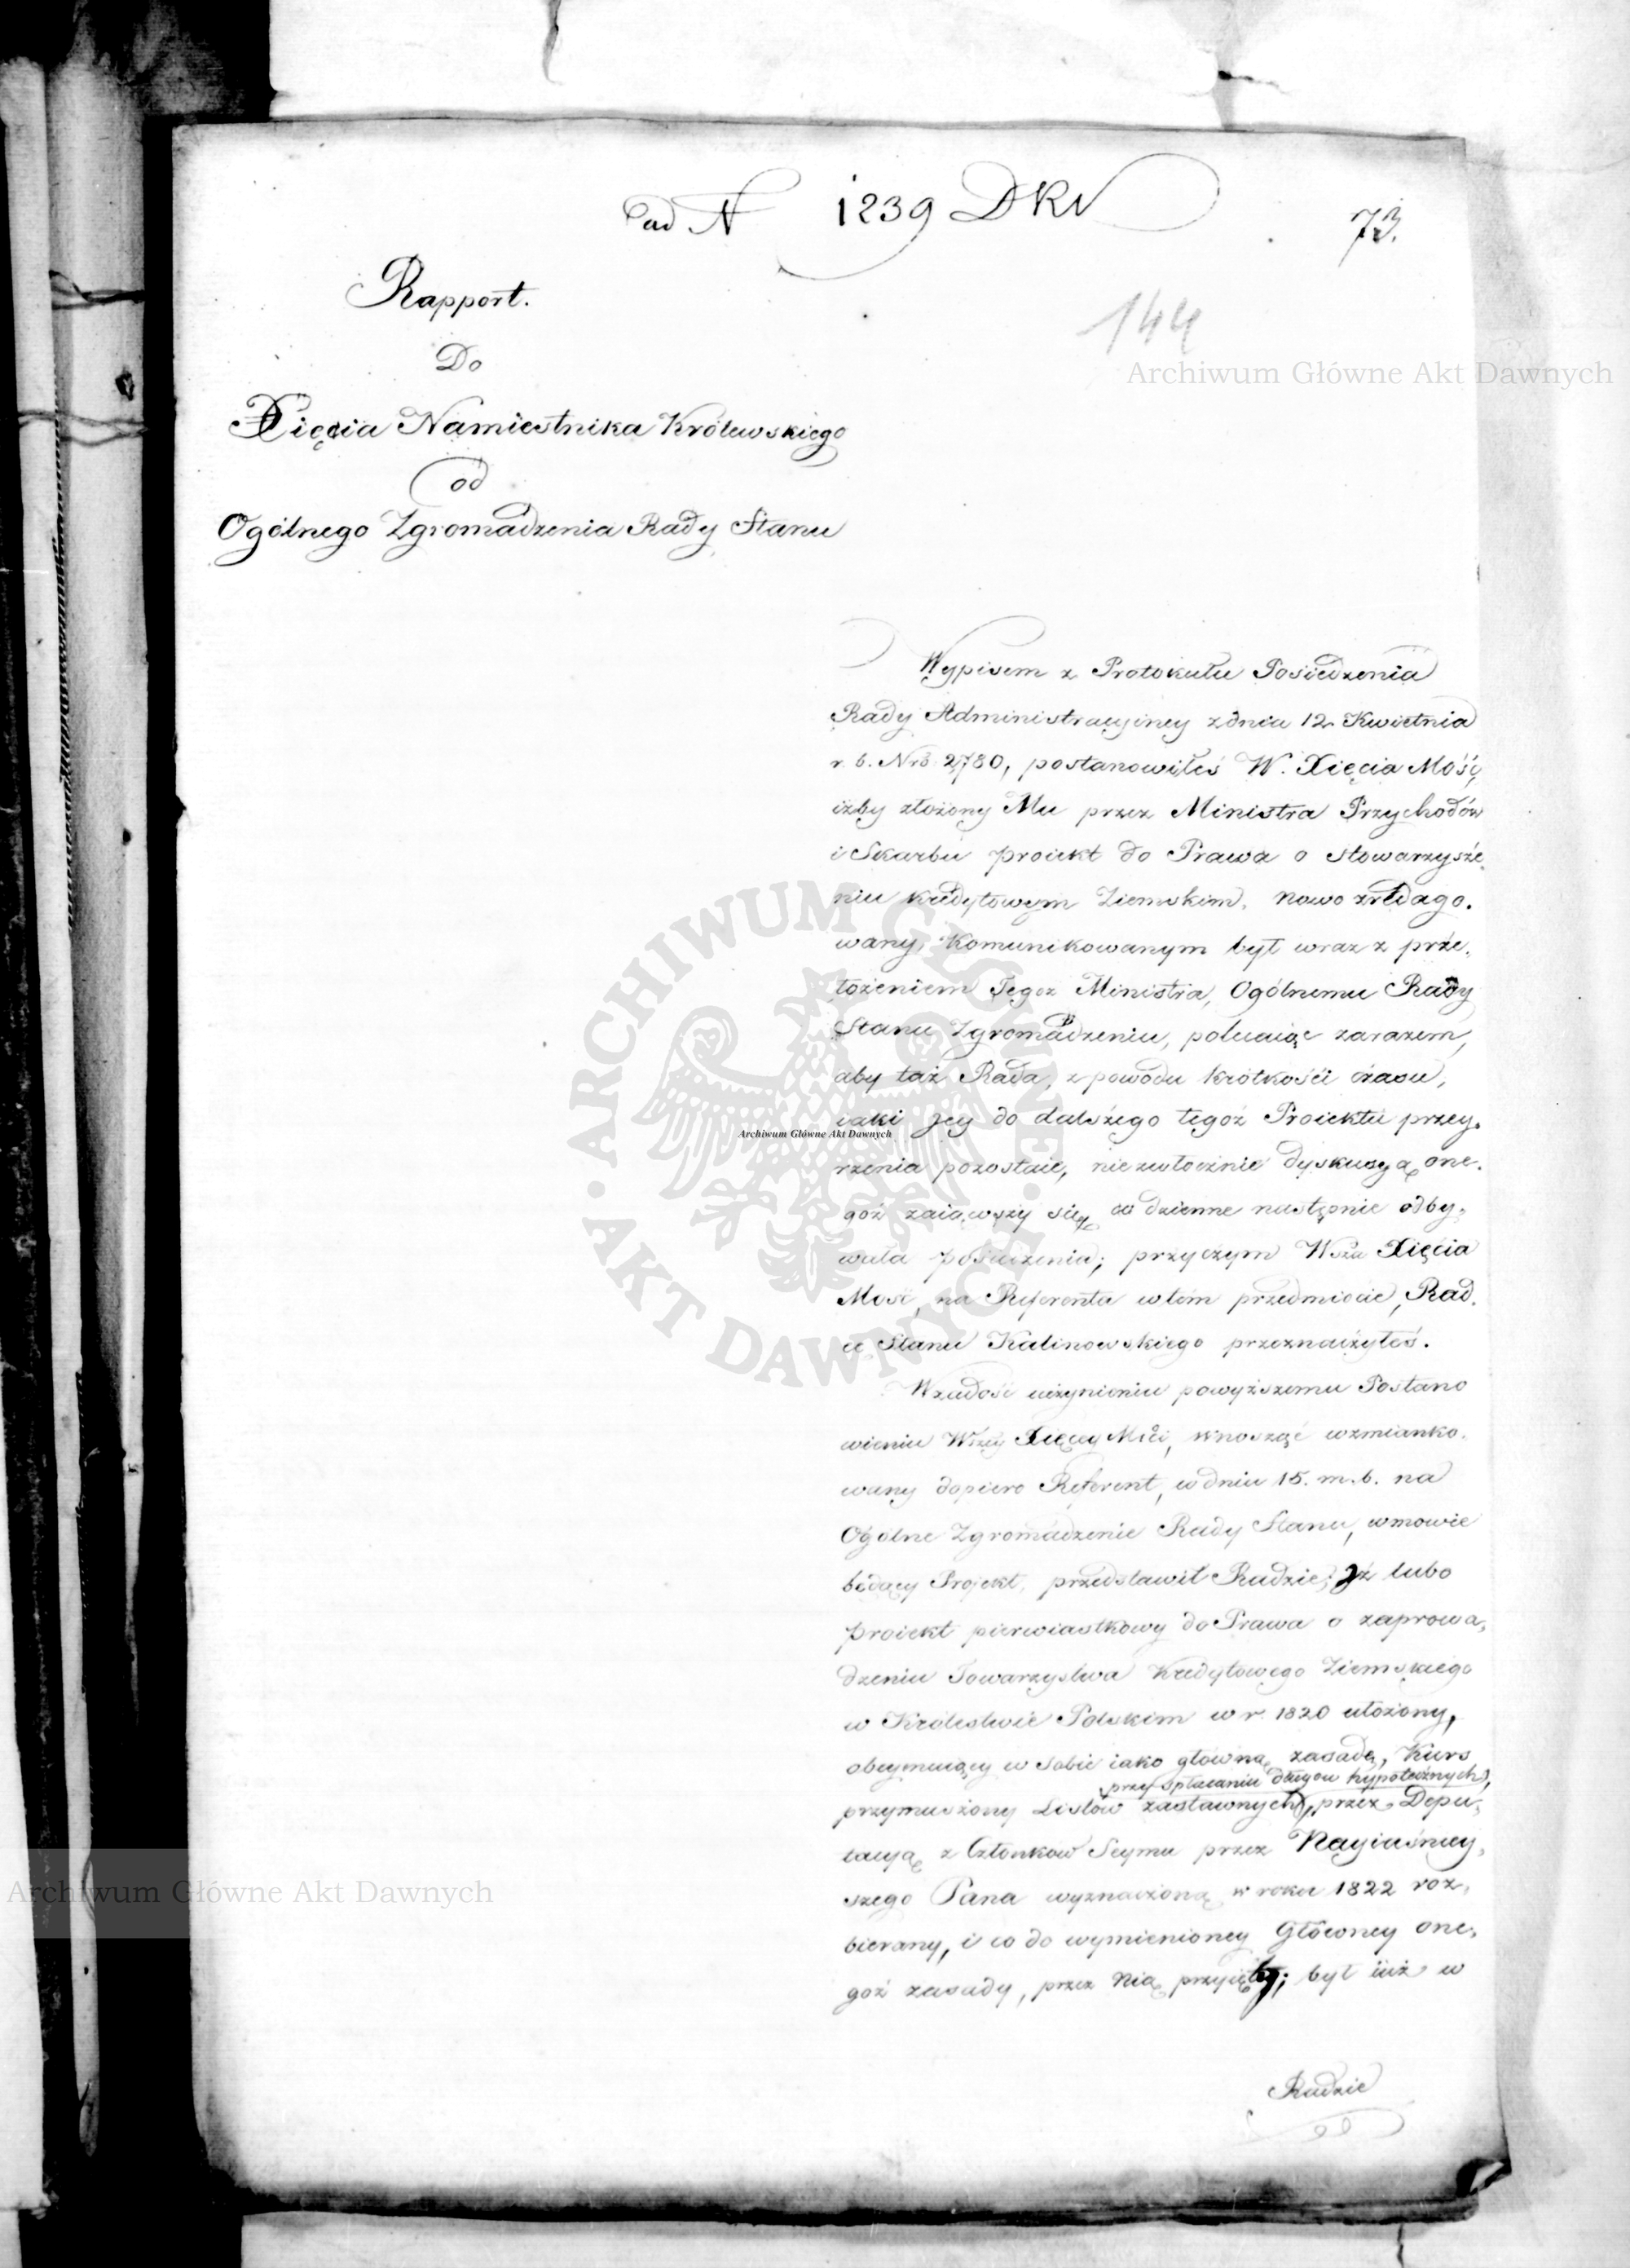 ad N 1239 DKN
73.
144
Rapport.
Do
Xięcia Namiestnika Królewskiego
od
Ogólnego Zgromadzenia Rady Stanu
Archiwum Główne Akt Dawnych
Wypisem z Protokułu Posiedzenia
Rady Administracyiney z dnia 12 Kwietnia
r. b. Nro 2,780, postanowiłeś W. Xięcia Mość,
iżby złożony Mu przez Ministra Przychodów
i Skarbu proiekt do Prawa o stowarzysze,
niu kredytowym Ziemskim, nowo zredago.
wany, komunikowanym był wraz z prze,
łożeniem Tegoż Ministra, Ogólnemu Rady
Stanu Zgromadzeniu, polecaiąc zarazem,
aby taż Rada, z powodu krótkości czasu,
iaki jey do dalszego tegoż Proiektu przey.
rzenia pozostaie, niezwłocznie dyskusyą one.
goż zaiąwszy się, co dzienne następnie odby,
wała posiedzenia; przyczym Wsza Xięcia
Mość, na Referenta w tém przedmiocie, Rad.
cę Stanu Kalinowskiego przeznaczyłeś.
W zadość uczynieniu powyższemu Postano
wieniu Wszey Xięcey Mści, wnosząc wzmianko.
wany dopiero Referent, w dniu 15. m. b. na
Ogólne Zgromadzenie Rady Stanu, w mowie
będący Projekt, przedstawił Radzie; Iż lubo
proiekt pierwiastkowy do Prawa o zaprowa,
dzeniu Towarzystwa Kredytowego Ziemskiego
w Królestwie Polskim w r. 1820 ułożony,
obeymuiący w sobie iako główną zasadę, Kurs
przy spłacaniu długów hypotecznych,
przymuszony Listów zastawnych, przez Depu,
tacyą z Członków Seymu przez Nayiaśniey,
szego Pana wyznaczoną w roku 1822 roz,
bierany, i co do wymienioney Główney one,
goż zasady, przez Nią przyięty; był iuż w
Radzie
Archiwum Główne Akt Dawnych
ARCHIWUM GŁÓWNE AKT DAWNYCH
Archiwum Główne Akt Dawnych